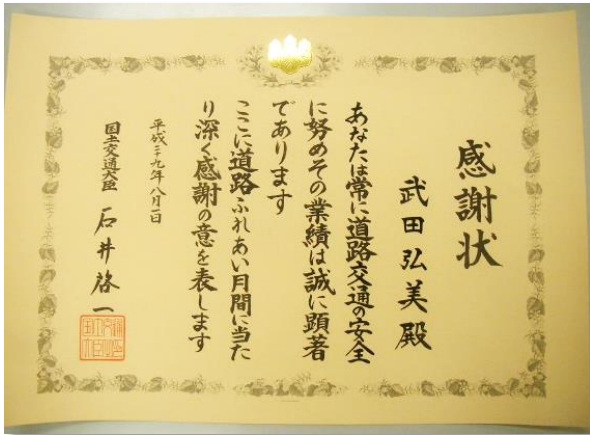 感謝状
武田弘美殿
あなたは常に道路交通の安全
に努めその業績は誠に顕著
であります
ここに道路ふれあい月間に当た
り深く感謝の意を表します
平成二十九年八月一日
国土交通大臣 石井啓一